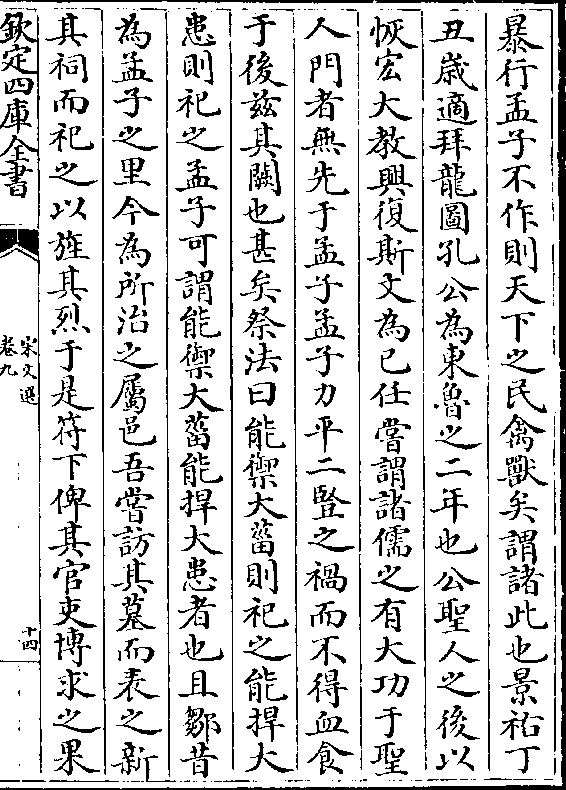 暴行孟子不作則天下之民禽獸矣謂諸此也景祐丁
丑歲適拜龍圖孔公為東魯之二年也公聖人之後以
恢宏大教興復斯文為已任嘗謂諸儒之有大功于聖
人門者無先于孟子孟子力平二豎之禍而不得血食
于後茲其闕也甚矣祭法曰能禦大菑則祀之能捍大
患則祀之孟子可謂能禦大菑能捍大患者也且鄒昔
為孟子之里今為所治之屬邑吾嘗訪其墓而表之新
其祠而祀之以旌其烈于是符下俾其官吏博求之果
欽定四庫全書
宋文選
卷九
十四